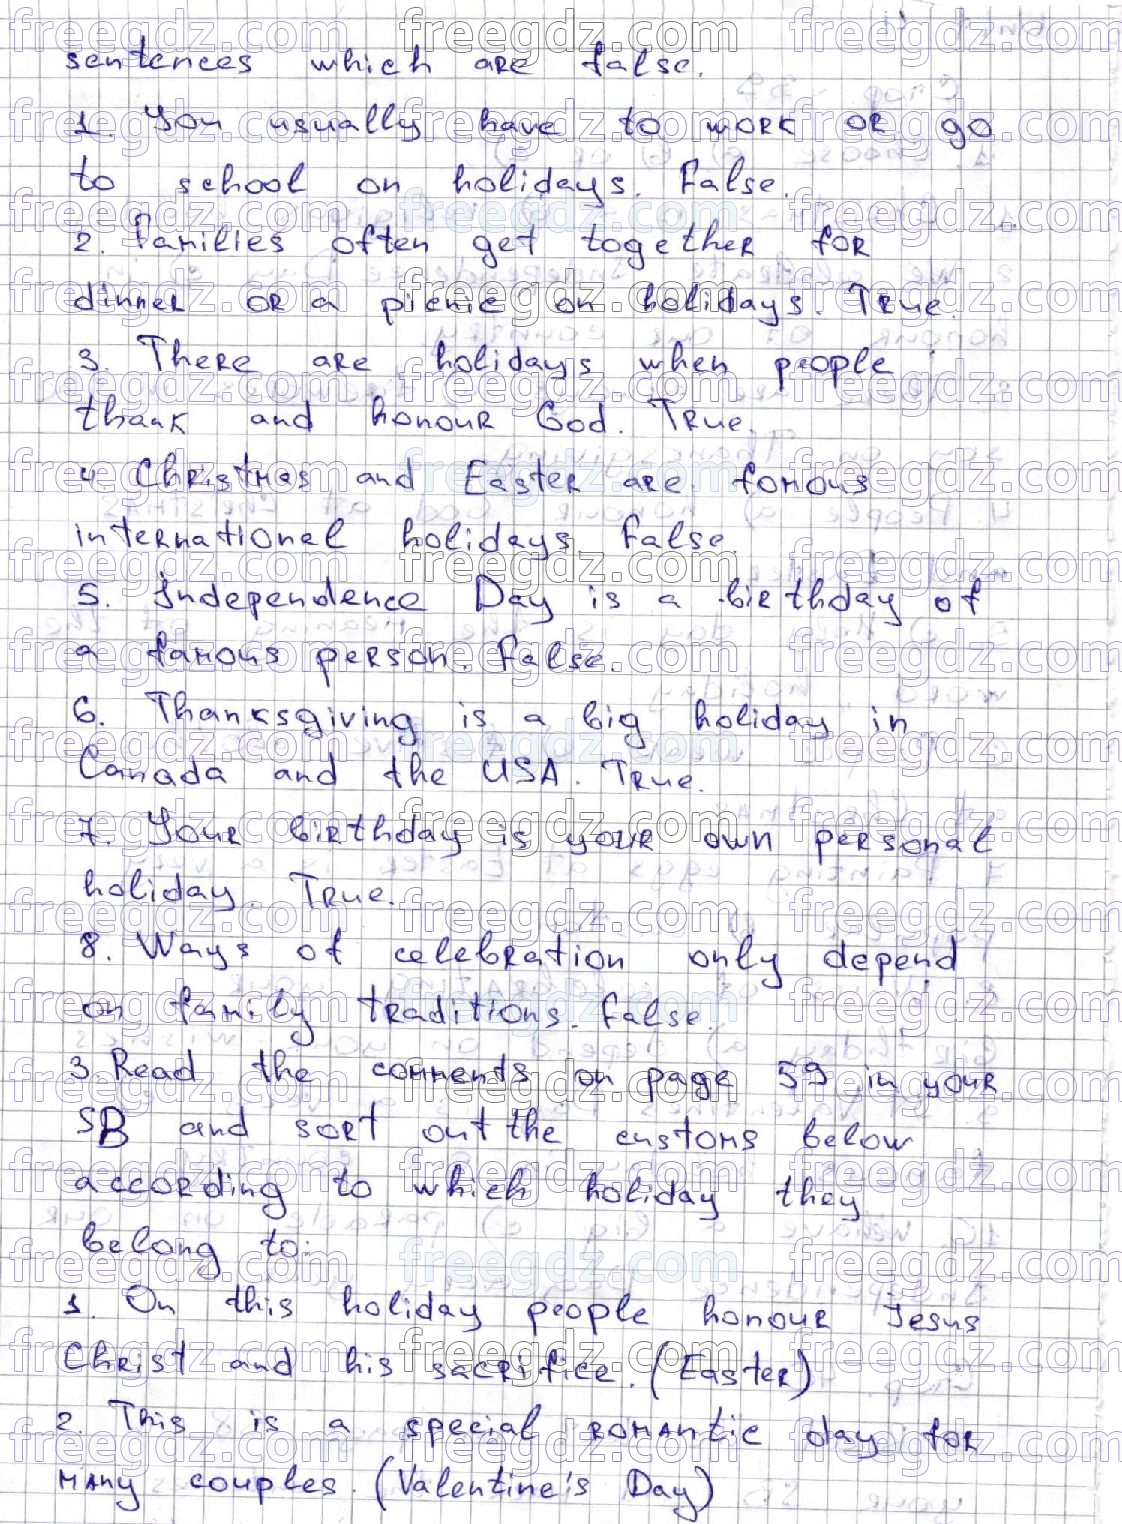 sentences which are false.
1. You usually have to work or go
to school on holidays. False.
2. Families often get together for
dinner or a picnic on holidays. True.
3. There are holidays when people
thank and honour God. True.
4 Christmas and Easter are famous
international holidays. False.
5. Independence Day is a birthday of
a famous person. False.
6. Thanksgiving is a big holiday in
Canada and the USA. True.
7. Your birthday is your own personal
holiday. True.
8. Ways of celebration only depend
on family traditions. False.
3. Read the comments on page 59 in your
SB and sort out the customs below
according to which holiday they
belong to:
1. On this holiday people honour Jesus
Christ and his sacrifice. (Easter)
2. This is a special romantic day for
many couples. (Valentine's Day)
freegdz.com